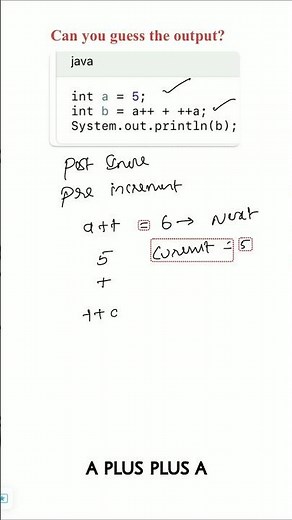 Can you guess the output?
java
int a = 5;
int b = a++ + ++a;
System.out.println(b);
Post
pre increment
a++ = 6 → Next
5 Current = 5
+
++a
A PLUS PLUS A